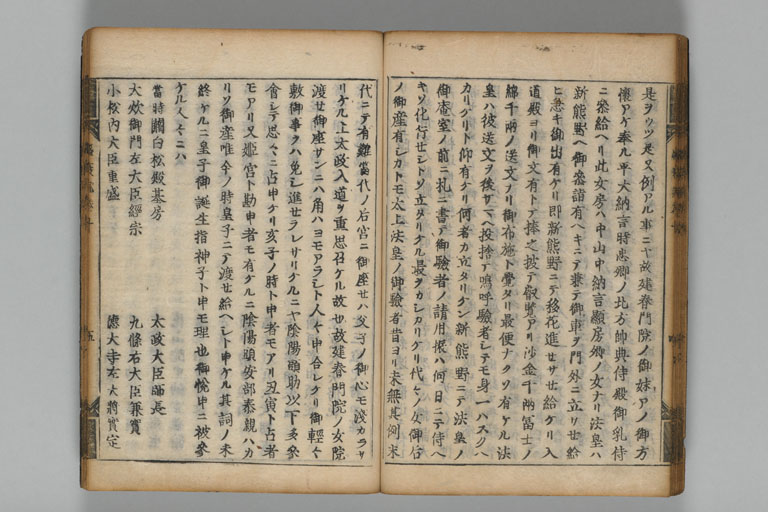 是ヲウツ是又例アル事ニヤ故建春門院ノ御妹アノ御方
懐アケ奉ル平大納言時忠卿ノ北方帥典侍殿御乳侍
ニ参給ヘリ此女房ハ中山中納言顕房卿ノ女ナリ法皇ハ
新熊野ヘ御参詣有ヘキニテ兼テ御車ヲ門外ニ立リセ給
ヒ急キ御出有ケリ即新熊野ニテ移花進セサセ給ケリ入
道殿ヨリ御文有トテ捧之披テ叡覧アリ沙金千両冨士ノ
綿千両ノ送文ナリ御布施ト覚タリ最便ナクソ有ケル法
皇ハ彼送文ヲ後サマヘ投捨テ嗚呼験者シテモ身一ハスクハ
カリケリト仰有ケリ何者カ立タリケン新熊野ニテ法皇ノ
御庵室ノ前ニ札ニ書テ御験者ノ請用振ハ何日ニテ侍ヘ
キソ化行セシトソ立タリケル最ヲカシカリケリ代々ノ女御后
ノ御産有シカトモ太上法皇ノ御験者昔ヨリ未無其例末
代ニテ有難當代ノ后宮ニ御座セハ父子ノ御心モ浅カラサ
リケル上太政入道ヲ重思召ケル故也故建春門院ノ女院
渡セ御座サンニハ角ハヨモアラシト人々申合レケリ御軽々
敷御事ヲハ免シ進セサラレサリケルニヤ陰陽頭助以下多参
會シテ思々ニ占申ケリ亥子ノ時ト申者モアリ丑寅ト占者
モアリ又姫宮ト勘申者モ有ケルニ陰陽頭安部泰親ハカ
リソ御産唯今ノ時皇子ニテ渡セ給ヘシト申ケル其詞ノ未
終ケルニ皇子御誕生指神子ト申モ理也御悦申ニ被参
ケル人々ニハ
當時關白松殿基房
太政大臣師長
大炊御門左大臣經宗
九條右大臣兼實
小松内大臣重盛
徳大寺左大將實定
五